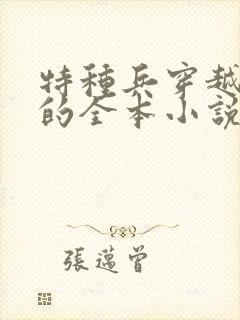 特種兵穿越
的全本小說
張薖曾